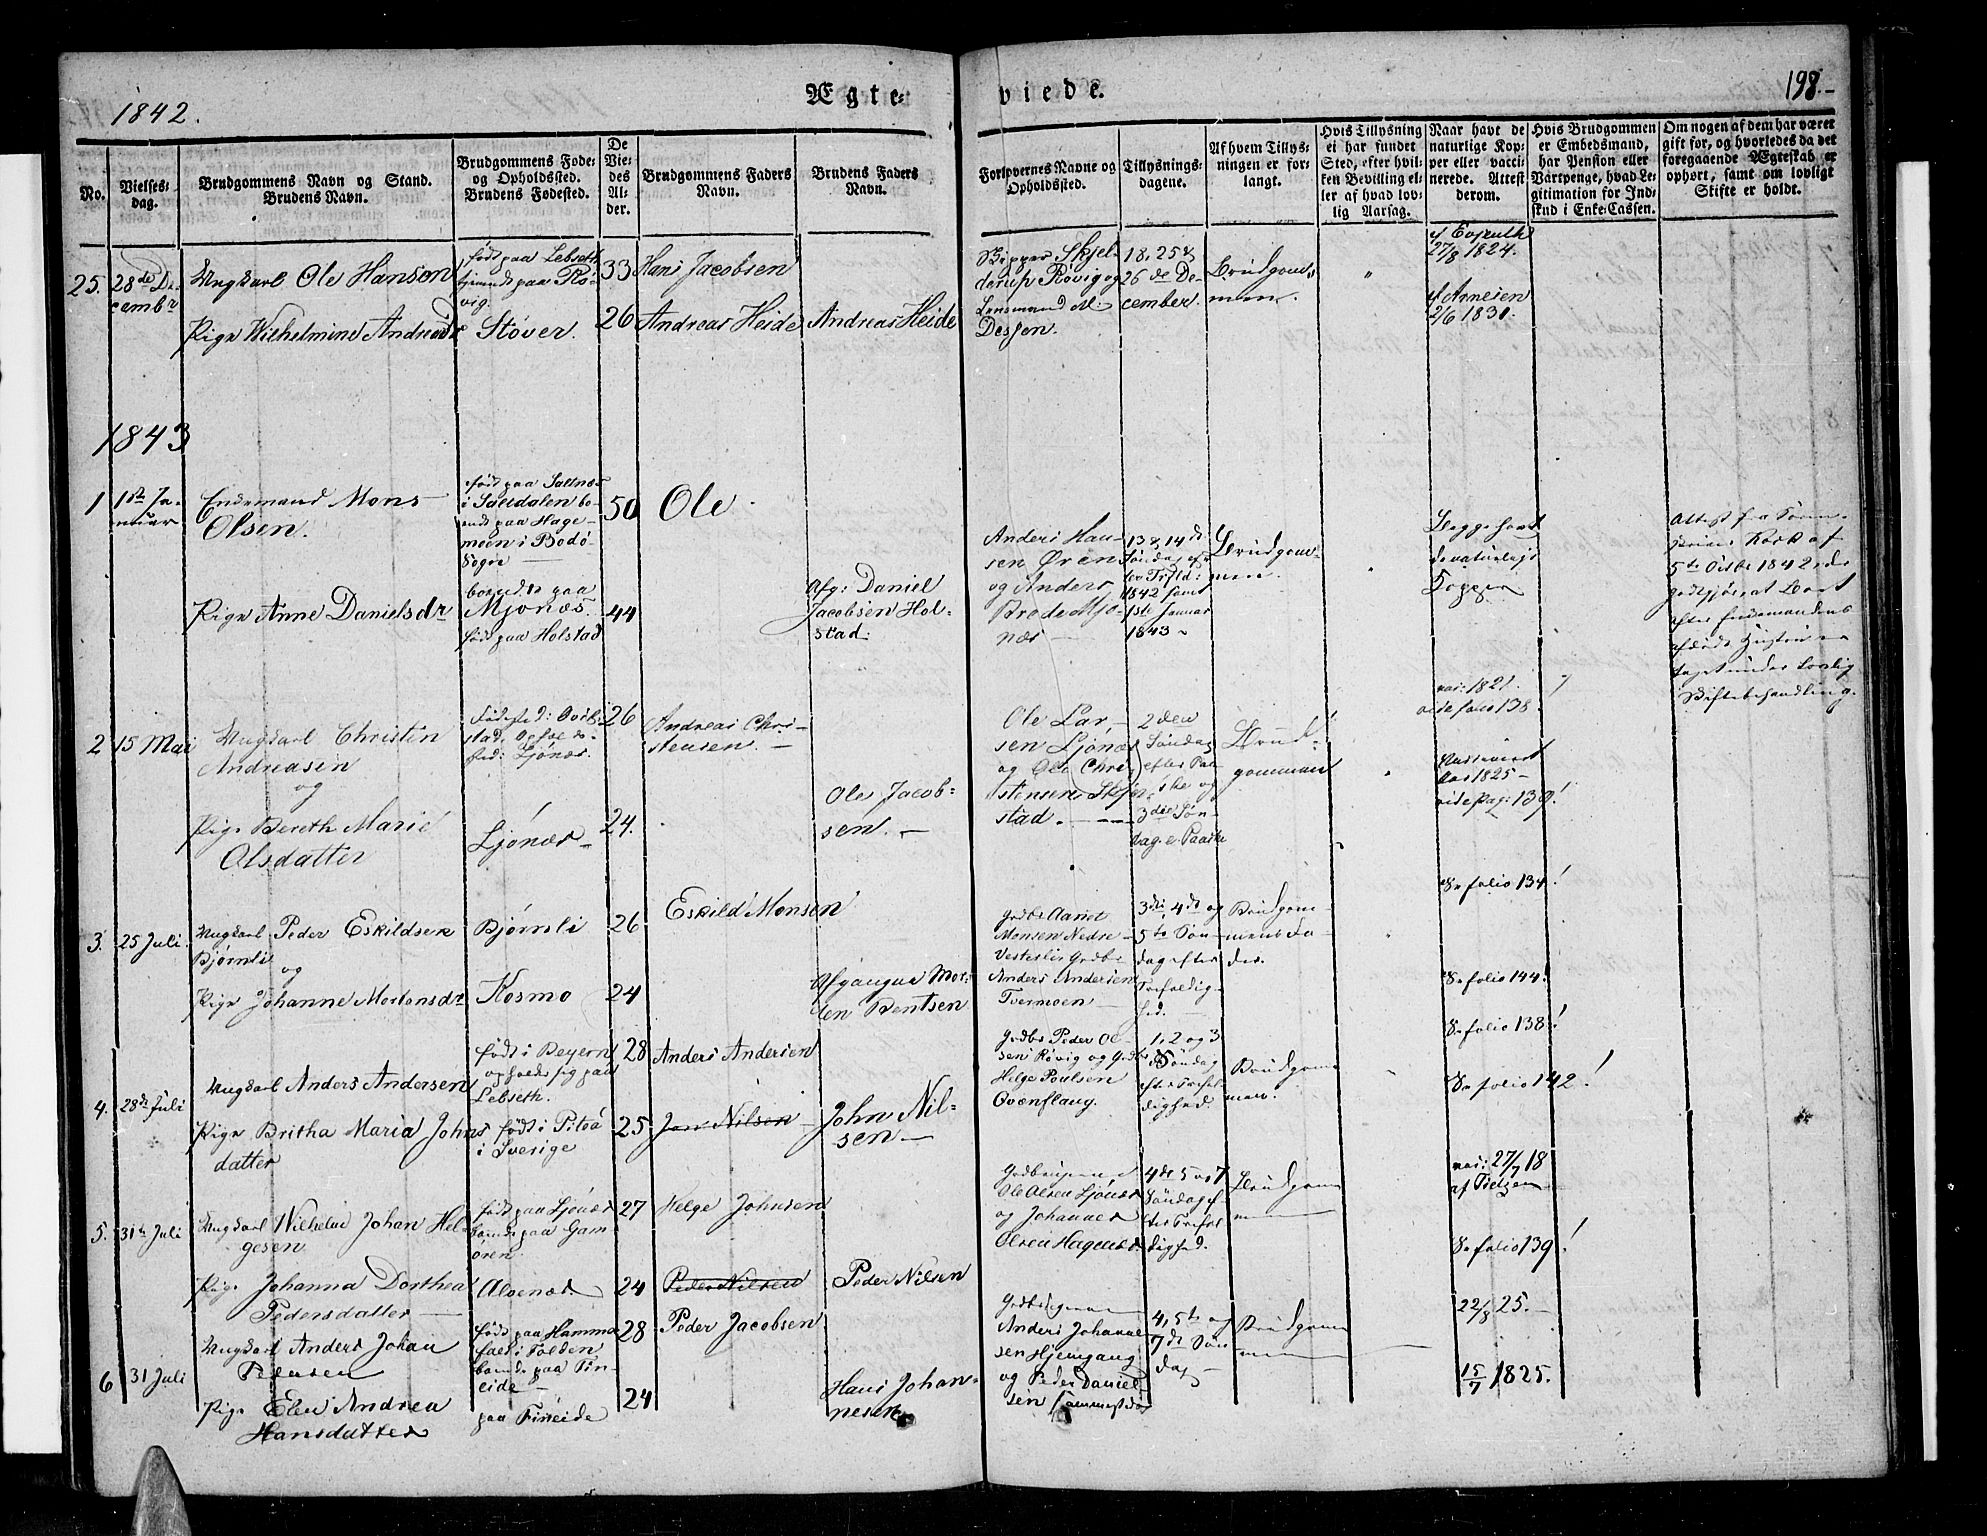 1842.
Ægte-
viede.
198.-
No.
Vielses-
dag.
Brudgommens Navn og Stand.
Brudens Navn.
Brudgommens Føde-
og Opholdssted.
Brudens Fødested.
De
Vie-
des
Al-
der.
Brudgommens Faders
Navn.
Brudens Faders
Navn.
Forlovernes Navne og
Opholdssted.
Tillysnings-
dagene.
Af hvem Tillys-
ningen er for-
langt.
Hvis Tillysning
ei har fundet
Sted, efter hvil-
ken Bevilling el-
ler af hvad lov-
lig Aarsag.
Naar havt de
naturlige Kop-
per eller vacci-
nerede. Attest
derom.
Hvis Brudgommen
er Embedsmand,
har Pension eller
Vartpenge, hvad Le-
gitimation for Ind-
skud i Enke-Cassen.
Om nogen af dem har været
gift for, og hvorledes da det
foregaaende Ægteskab er
ophørt, samt om lovligt
Skifte er holdt.
25.
28de De-
cembr
Ungkarl Ole Hansen
Pige Wilhelmine Andreasdr
født paa Lebseth
tjenende paa Rö-
vig.
Støver.
33
26
Hans Jacobsen
Andreas Heide
Andreas Heide
Skjel-
derup Rövig og
Lensmand M:
Dessen.
18, 25 &
26 de De-
cember.
Brudgom-
men.
27/8 1824.
af Arnesen
2/6 1831.
1843
1
1ste Ja-
nuar
Enkemand Mons
Olsen.
Pige Anne Danielsdr
født paa Saltnæs
i Saltdalen bo-
ende paa Hage-
moen i Bodö
Sogn
boende paa
Mjönæs.
født paa Holstad
50
44
Ole
Afg: Daniel
Jacobsen Hol-
stad.
Anders Han-
sen Øren
og Anders
Mjö-
næs
13 & 14de
Söndag ef-
ter Trfld:
1842 samt
1ste Januar
1843
Brudgom-
men.
Begge havt
de naturlige
Kopper
Attest fra Soren-
af
5te Octbr 1842, de
godtgjör, at Boet
efter Enkemandens
afdöde Hustru er
taget under Lovlig
Skiftebehandling.
2
15 Mai
Ungkarl Christen
Andreasen
og
Pige Bereth Marie
Olsdatter
Födested:
stad. Opholds-
sted: Ljönæs.
Ljönæs
26
24.
Andreas Chri-
stensen.
Ole Jacob-
sen.
Ole Lar-
sen Ljönæs
og Ole Chri-
stensen Skjer-
stad.
2den
Söndag
efter Paa-
ske og
3die Søn-
dag e. Paaske
Brud-
gommen
vac: 1821.
vide folio 138.
Vaccineret
1825
vide Pag: 139!
3.
25 Juli.
Ungkarl Peder Eskildsen
Bjørnli
og
Pige Johanne Mortensdr
Bjørnli
Kosmo
26
24
Eskild Monsen
Afgangne Mor-
ten Bentsen
Grdbr Aamot
Monsen Nedre
Vesterli og Grdbr
Anders Andersen
Tvermoen
3die, 4de og
5te Søn-
dag efter
Trefoldig-
hed.
Brudgom-
mens Fa-
der.
Se folio 134!
Se folio 144!
4.
28de Juli
Ungkarl Anders Andersen
Pige Britha Maria Johns
datter
født i Beyern
opholder sig paa
Lebseth.
født i Piteå
i Sverige
28
25
Anders Andersen
Jon Nilsen
John Nil-
sen
Grdbr Peder Ol-
sen Rövig og Grdbr
Helge Poulsen
Qvænflaug.
1, 2 og 3
Söndag
efter Trefol-
dighed.
Brudgom-
men.
Se folio 138!
Se folio 142!
5.
31te Juli
Ungkarl Wilhelm Johan Hel-
gesen
Pige Johanna Dorthea
Pedersdatter
født paa Ljönæs
boende paa Gam-
ören.
Alvenæs
27
24
Helge Johnsen
Peder Nilsen
Peder Nilsen
Gaardbrugerne
Ole Olsen Ljönæs
og Johannes
Olsen
4de 5 og 7
Söndag ef-
ter Trefol-
dighed.
Brudgom
vac: 27/7 18
Se folio 139!
6
31 Juli
Ungkarl Anders Johan
Pedersen
Pige Elen Andrea
Hansdatter
født paa Hamma-
fald i Folden
boende paa Fin-
eide
paa Fineide
28
24
Peder Jacobsen
Hans Johan-
nesen
Anders Johanne-
sen Hjemgang
og Peder Daniel-
sen
4, 5te og
7de Søn
dag
Brudgom
22/8 25.
15/7 1825.